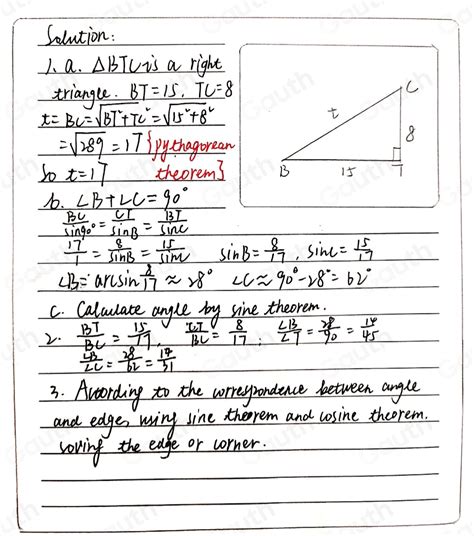 Solution:
1. a. △BTC is a right
triangle. BT=15, TC=8
t=BC=√BT²+TC²=√15²+8²
=√289=17 {pythagorean
So t=17 theorem}
b. ∠B+∠C=90°
BC/sin90°=CT/sinB=BT/sinC
17/1=8/sinB=15/sinC sinB=8/17, sinC=15/17
∠B=arcsin 8/17≈28° ∠C≈90°-28°=62°
c. Calculate angle by sine theorem.
2. BT/BC=15/17, CT/BC=8/17; ∠B/∠T=28/90=14/45
∠B/∠C=28/62=14/31
3. According to the correspondence between angle
and edge, using sine theorem and cosine theorem.
soving the edge or corner.
C
t
8
B
15
T
Gauth